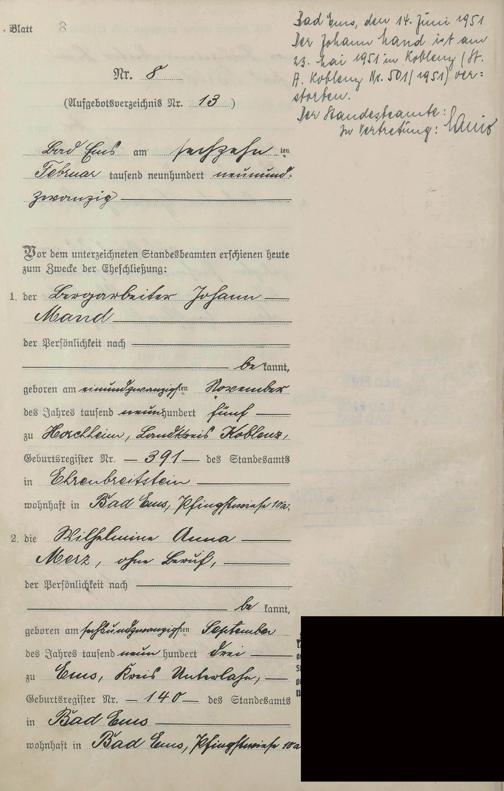 Blatt 8
Bad Ems, den 14. Juni 1951
Der Johann Mand ist am
23. Mai 1951 in Koblenz (St.
A. Koblenz Nr. 501/1951) ver-
storben.
Der Standesbeamte:
In Vertretung:
Nr. 8
(Aufgebotsverzeichnis Nr. 13)
Bad Ems am sechzehn ten
Februar tausend neunhundert neunund-
zwanzig
Vor dem unterzeichneten Standesbeamten erschienen heute
zum Zwecke der Eheschließung:
1. der Bergarbeiter Johann
Mand
der Persönlichkeit nach
be kannt,
geboren am einundzwanzigsten November
des Jahres tausend neunhundert fünf
zu Horchheim, Landkreis Koblenz,
Geburtsregister Nr. 391 des Standesamts
in Ehrenbreitstein
wohnhaft in Bad Ems, Pfingstwiese 10a.
2. die Wilhelmine Anna
Merz, ohne Beruf,
der Persönlichkeit nach
be kannt,
geboren am sechsundzwanzigsten September
des Jahres tausend neun hundert drei
zu Ems, Kreis Unterlahn,
Geburtsregister Nr. 140 des Standesamts
in Bad Ems
wohnhaft in Bad Ems, Pfingstwiese 10a